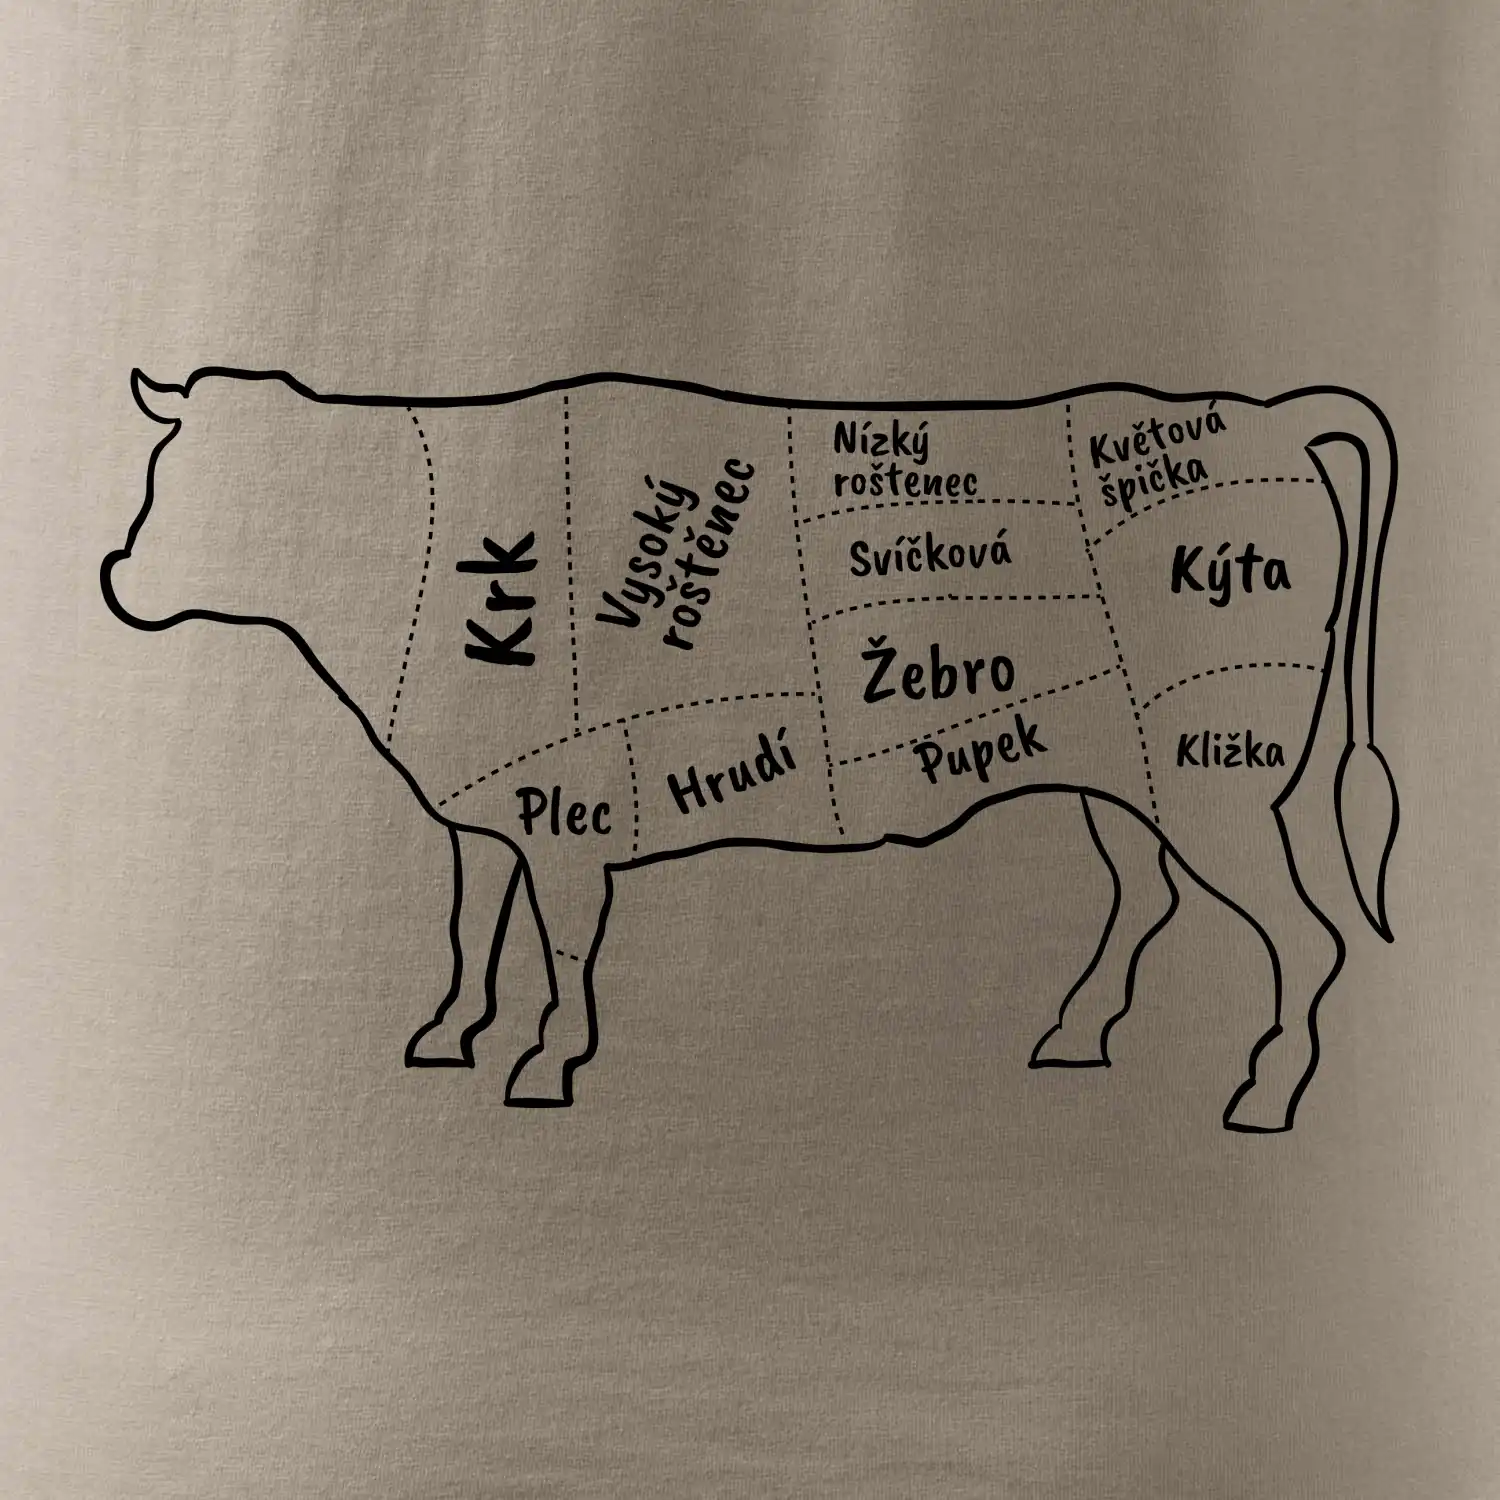 Krk
Vysoký
roštěnec
Nízký
roštenec
Květová
špička
Svíčková
Kýta
Žebro
Pupek
Kližka
Hrudí
Plec